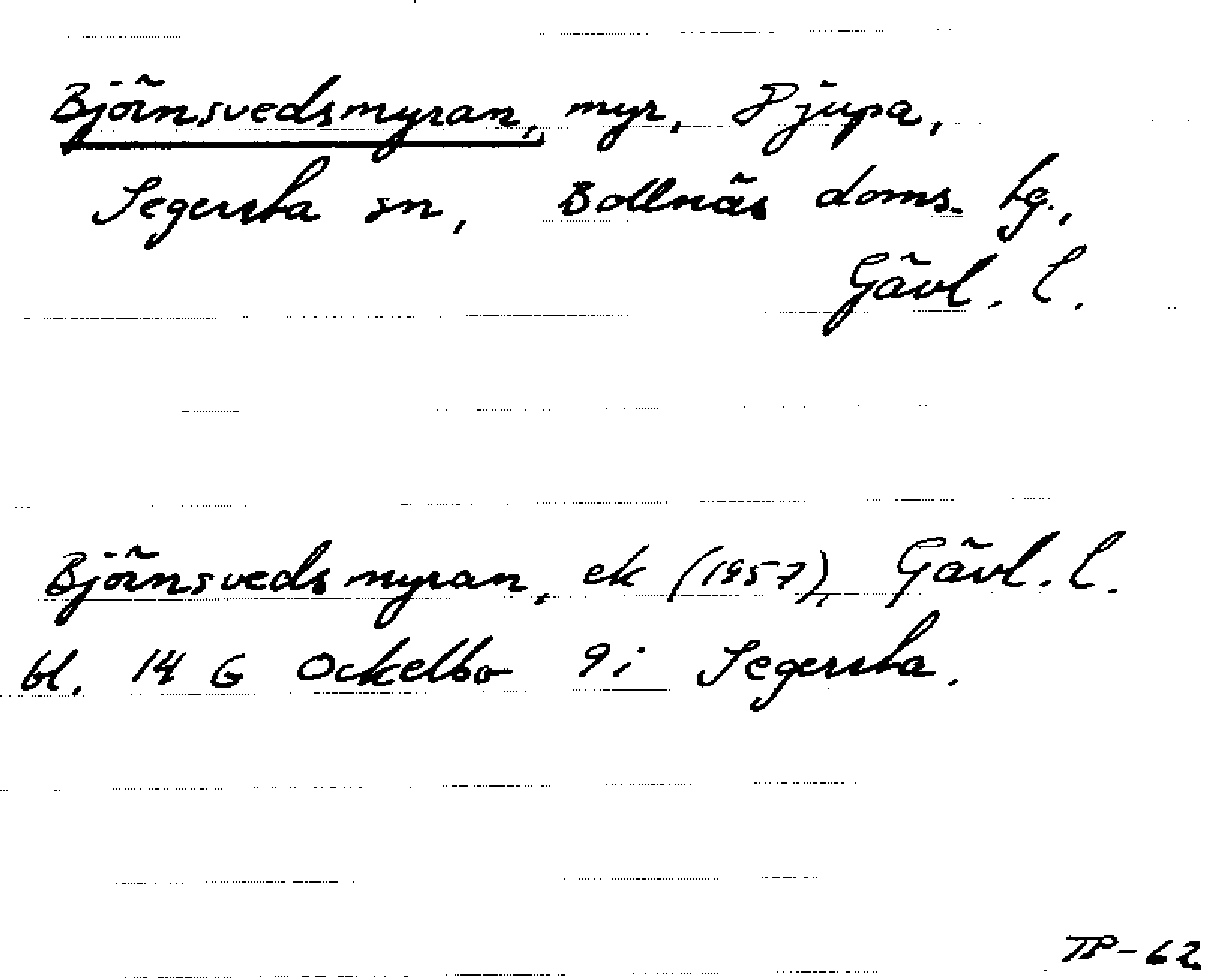 Björnsvedsmyran, myr, Djupa,
Segersta sn, Bollnäs doms. hg.,
Gävl. l.
Björnsvedsmyran, ek (1957), Gävl. l.
bl. 14 G Ockelbo 9 i Segersta.
TP-62